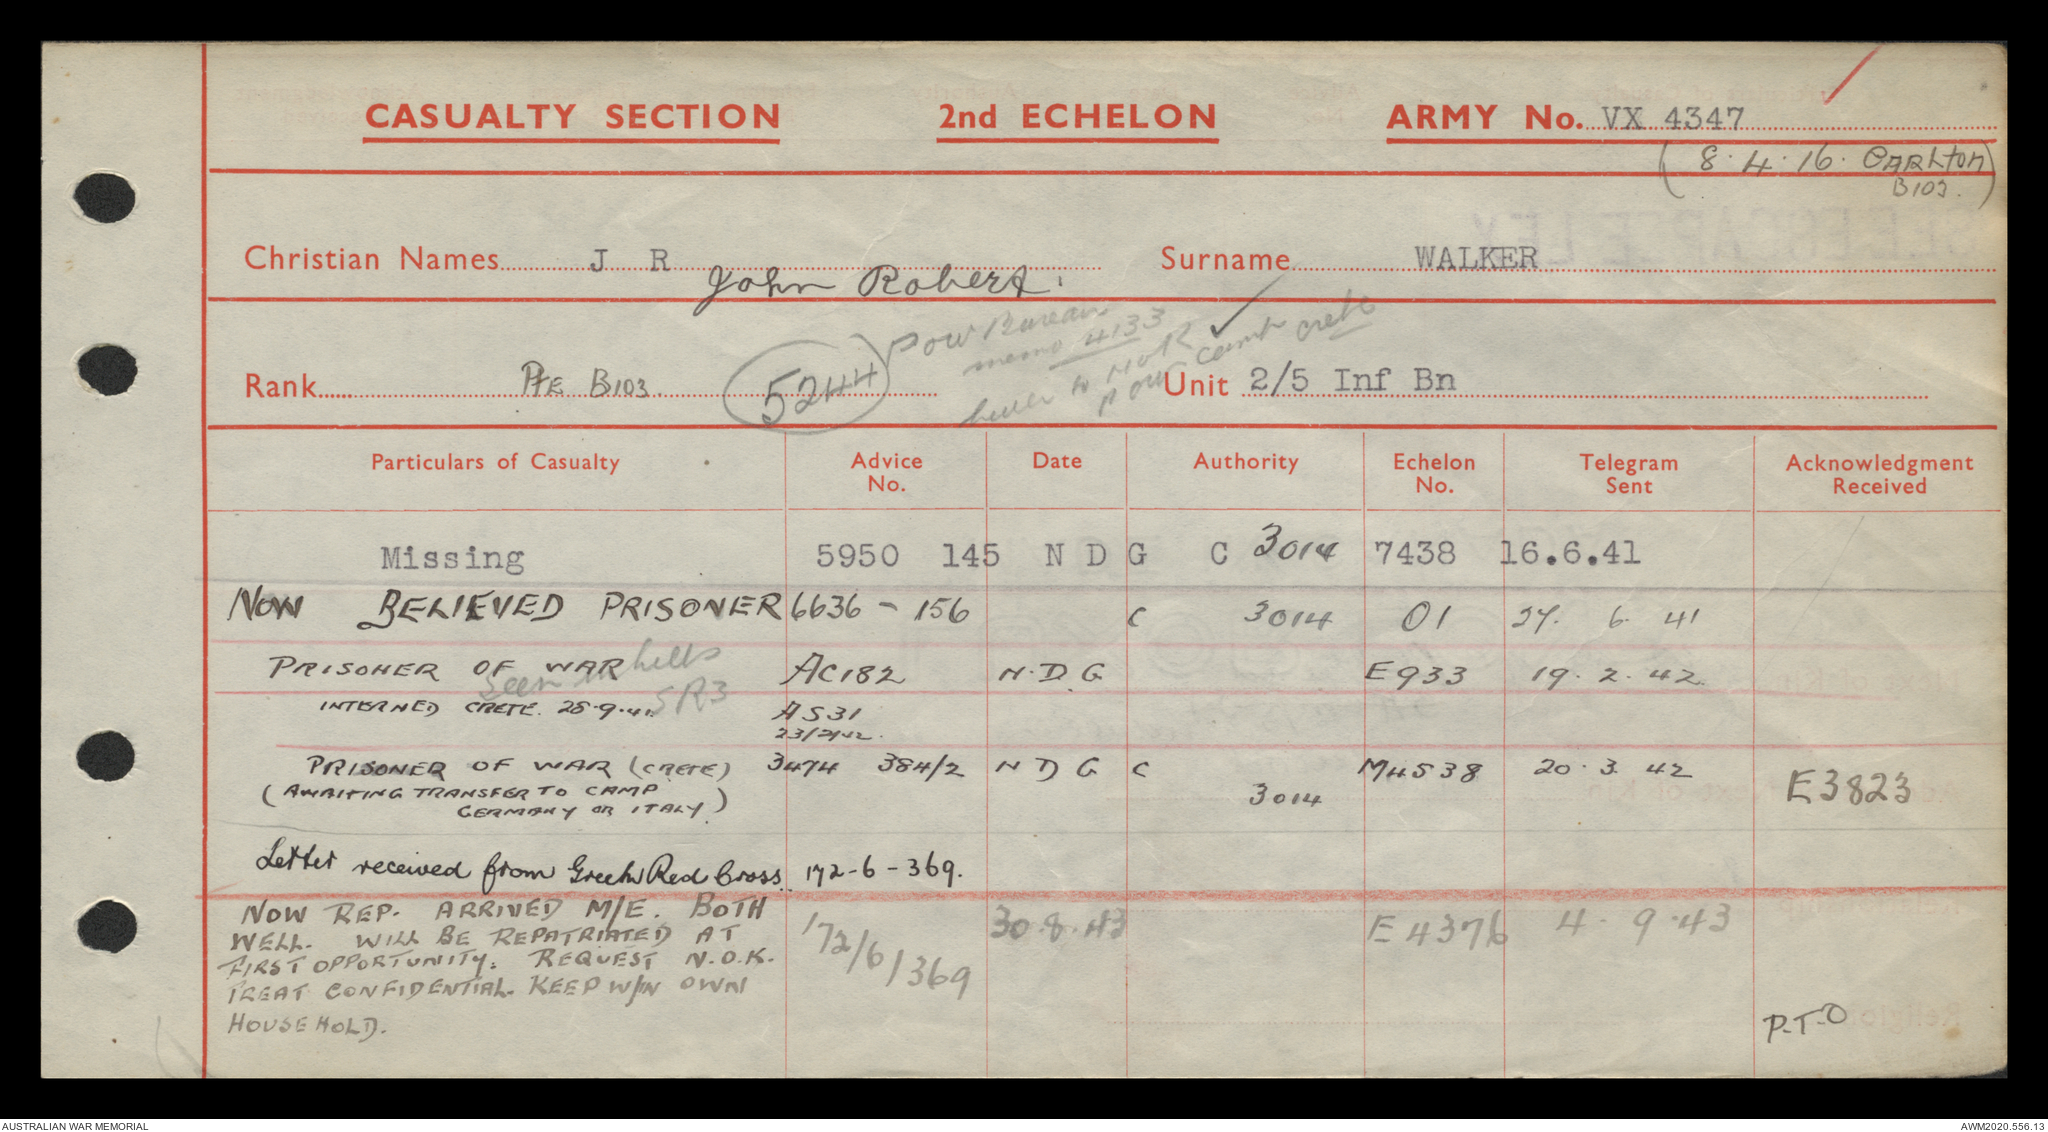 CASUALTY SECTION 2nd ECHELON ARMY No. VX 4347
(8.4.16. CARLTON
B103.)
Christian Names J R Surname WALKER
John Robert.
POW Bureau
memo 4133
Rank Pte B103. 5244 Unit 2/5 Inf Bn
to NOK
POW camp Crete
Particulars of Casualty Advice No. Date Authority Echelon No. Telegram Sent Acknowledgment Received
Missing 5950 145 N D G C 3014 7438 16.6.41
NOW BELIEVED PRISONER 6636 - 156 C 3014 01 27. 6. 41
PRISONER OF WAR AC182 N.D.G E933 19.2.42
seen in hills
SR3
INTERNED CRETE. 25.9.41. AS31
PRISONER OF WAR (CRETE) 3474 384/2 N D G C M4538 20.3.42
(AWAITING TRANSFER TO CAMP 3014 E3823
GERMANY OR ITALY.)
Letter received from Greek Red Cross. 172-6-369.
NOW REP. ARRIVED M/E. BOTH 172/6/369 30.8.43 E4376 4.9.43
WELL. WILL BE REPATRIATED AT
FIRST OPPORTUNITY. REQUEST N.O.K.
TREAT CONFIDENTIAL. KEEP W/IN OWN
HOUSEHOLD.
P.T.O
AUSTRALIAN WAR MEMORIAL AWM2020.556.13